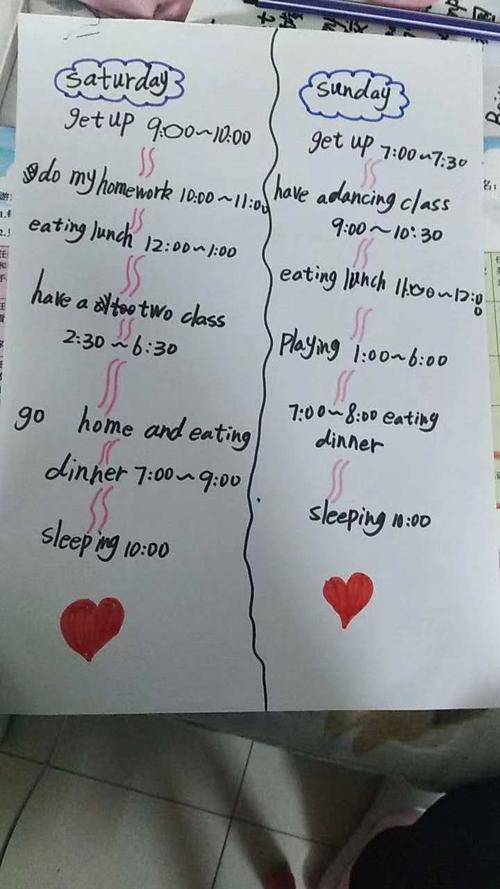 saturday
get up 9:00~10:00
do my homework 10:00~11:00
eating lunch 12:00~1:00
have a two class
2:30~6:30
go home and eating
dinner 7:00~9:00
sleeping 10:00
sunday
get up 7:00~7:30
have a dancing class
9:00~10:30
eating lunch 11:00~12:00
playing 1:00~6:00
7:00~8:00 eating
dinner
sleeping 10:00